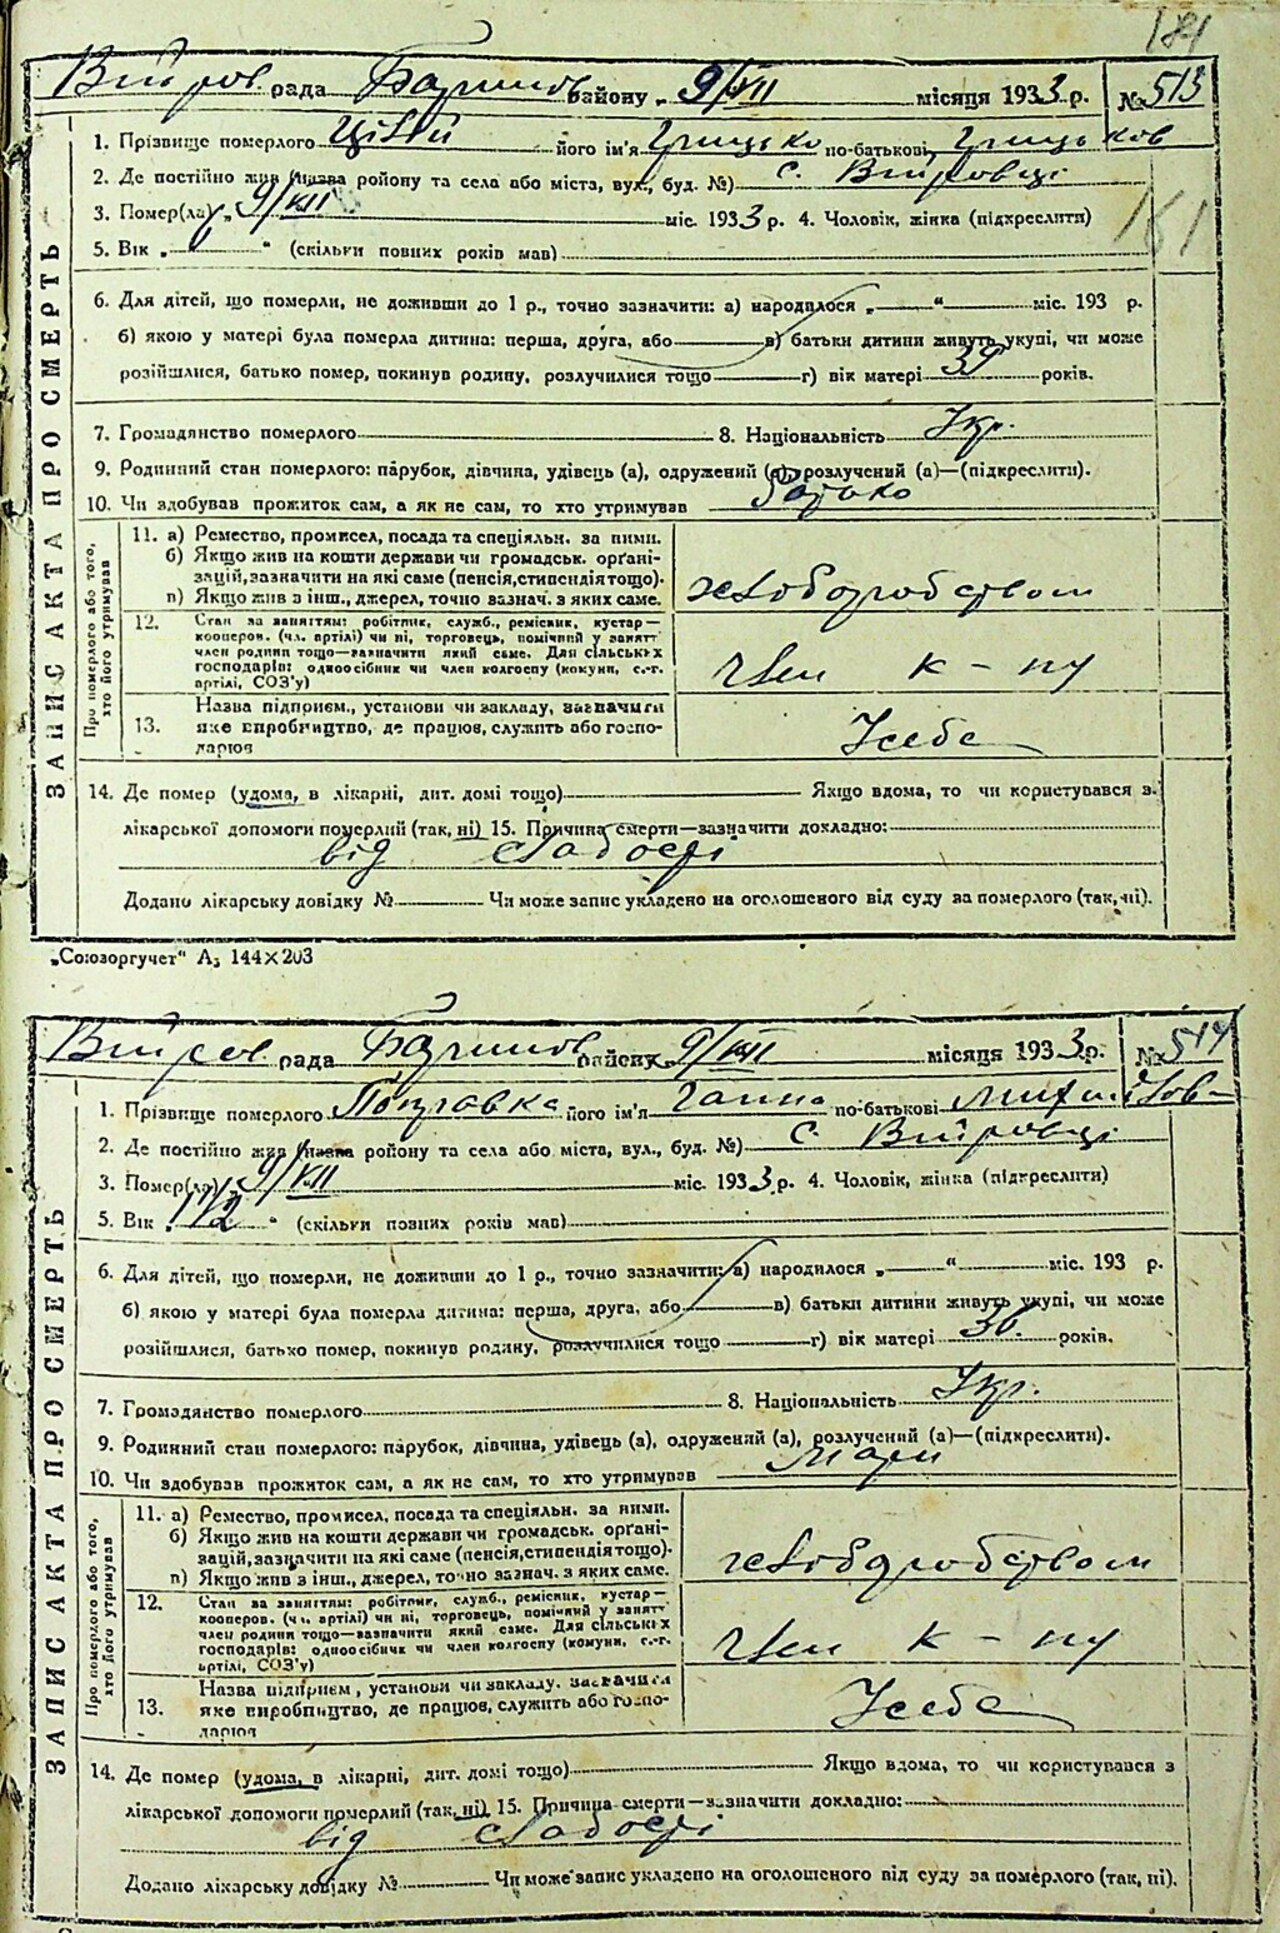 181
Війтов. рада Баришов. району „ 9/VII місяця 1933 р. № 513
1. Прізвище померлого Цівий його ім'я Грицько по-батькові Грицьков
2. Де постійно жив (назва ройону та села або міста, вул., буд. №) с. Війтовці
3. Помер(ла) „ 9/VII міс. 1933 р. 4. Чоловік, жінка (підкреслити)
161
5. Вік „ “ (скільки повних років мав)
6. Для дітей, що померли, не доживши до 1 р., точно зазначити: а) народилося „ “ міс. 193 р.
б) якою у матері була померла дитина: перша, друга, або в) батьки дитини живуть укупі, чи може
розійшлися, батько помер, покинув родину, розлучилися тощо г) вік матері 39 років.
7. Громадянство померлого 8. Національність Укр.
9. Родинний стан померлого: парубок, дівчина, удівець (а), одружений (а), розлучений (а)—(підкреслити).
10. Чи здобував прожиток сам, а як не сам, то хто утримував батько
ЗАПИС АКТА ПРО СМЕРТЬ
Про померлого або того, хто його утримував
11. а) Ремество, промисел, посада та спеціяльн. за ними.
б) Якщо жив на кошти держави чи громадськ. орґані-
зацій, зазначити на які саме (пенсія, стипендія тощо).
в) Якщо жив з інш., джерел, точно зазнач. з яких саме.
хліборобством
12. Стан за заняттям: робітник, служб., ремісник, кустар—
кооперов. (чл. артілі) чи ні, торговець, помічний у занятт
член родини тощо—зазначити який саме. Для сільських
господарів: одноосібник чи член колгоспу (комуни, с.-г.
артілі, СОЗ'у)
член к-пу
13. Назва підприєм., установи чи закладу, зазначити
яке виробництво, де працюв, служить або госпо-
дарюв
У себе
14. Де помер (удома, в лікарні, дит. домі тощо) Якщо вдома, то чи користувався з
лікарської допомоги померлий (так, ні) 15. Причина смерти—зазначити докладно:
від слабості
Додано лікарську довідку № Чи може запис укладено на оголошеного від суду за померлого (так, ні).
„Союзоргучет“ А₅ 144×203
Війтов. рада Баришов. району „ 9/VII місяця 1933 р. № 514
1. Прізвище померлого Поправка його ім'я Ганна по-батькові Михайлов-
2. Де постійно жив (назва ройону та села або міста, вул., буд. №) с. Війтовці
3. Помер(ла) „ 9/VII міс. 1933 р. 4. Чоловік, жінка (підкреслити)
5. Вік „ 1/2 “ (скільки повних років мав)
6. Для дітей, що померли, не доживши до 1 р., точно зазначити: а) народилося „ “ міс. 193 р.
б) якою у матері була померла дитина: перша, друга, або в) батьки дитини живуть укупі, чи може
розійшлися, батько помер, покинув родину, розлучилися тощо г) вік матері 36. років.
7. Громадянство померлого 8. Національність Укр.
9. Родинний стан померлого: парубок, дівчина, удівець (а), одружений (а), розлучений (а)—(підкреслити).
10. Чи здобував прожиток сам, а як не сам, то хто утримував мати
ЗАПИС АКТА ПРО СМЕРТЬ
Про померлого або того, хто його утримував
11. а) Ремество, промисел, посада та спеціяльн. за ними.
б) Якщо жив на кошти держави чи громадськ. орґані-
зацій, зазначити на які саме (пенсія, стипендія тощо).
в) Якщо жив з інш., джерел, точно зазнач. з яких саме.
хліборобством
12. Стан за заняттям: робітник, служб., ремісник, кустар—
кооперов. (чл. артілі) чи ні, торговець, помічний у занятт
член родини тощо—зазначити який саме. Для сільських
господарів: одноосібник чи член колгоспу (комуни, с.-г.
артілі, СОЗ'у)
член к-пу
13. Назва підприєм, установи чи закладу, зазначити
яке виробництво, де працюв, служить або госпо-
дарюв
У себе
14. Де помер (удома, в лікарні, дит. домі тощо) Якщо вдома, то чи користувався з
лікарської допомоги померлий (так, ні) 15. Причина смерти—зазначити докладно:
від слабості
Додано лікарську довідку № Чи може запис укладено на оголошеного від суду за померлого (так, ні).